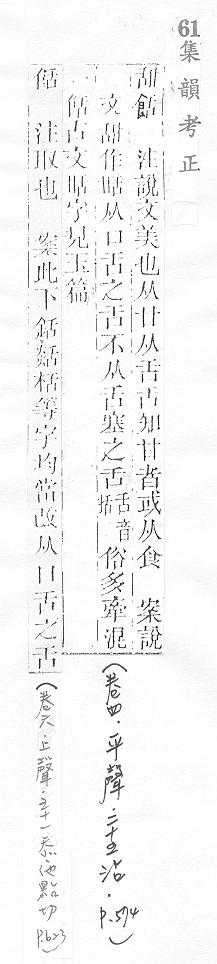 61集韻考正
甜餂 注說文美也从甘从舌舌知甘者或从食 案說
文甜作甛从口舌之舌不从舌塞之舌舌音括俗多牽混
古文甛字見玉篇
注取也 案此下銛栝等字均當改从口舌之舌
(卷四.平聲.二十五沾.P.594)
(卷六.上聲.五十一忝他點切 P.623)